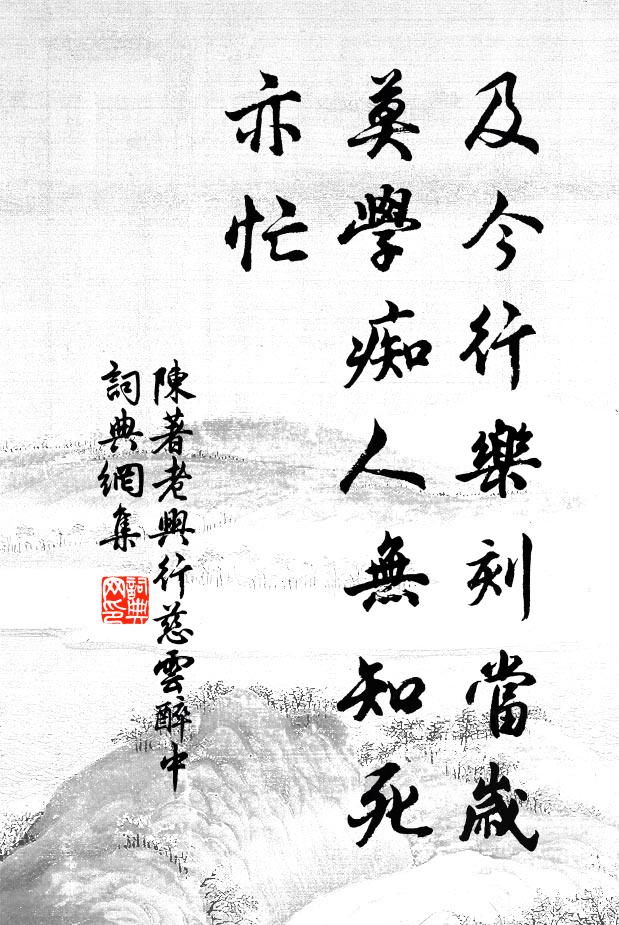 及今行樂刻當歲
莫學痴人無知死
亦忙
陳著老興行慈雲醉中
詞典網集
詞典
网印